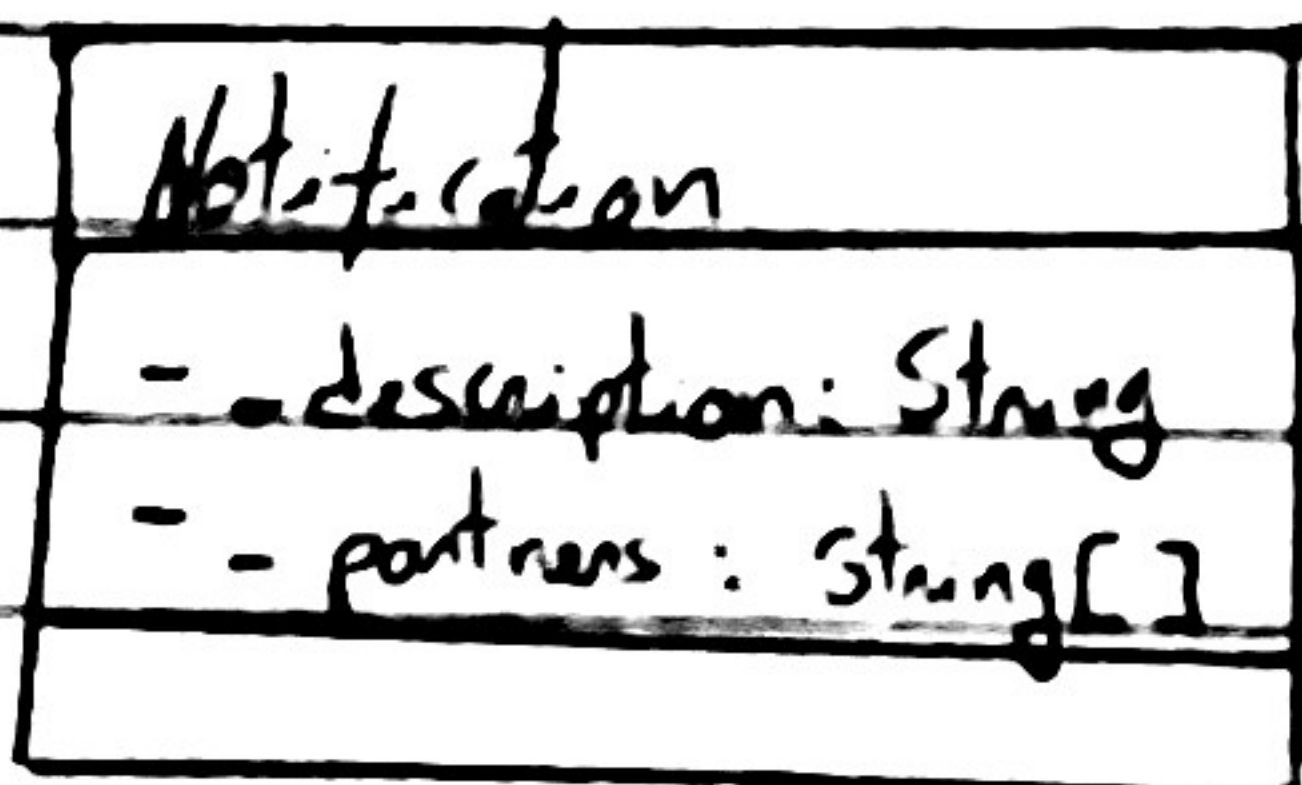 Notification
- - description: String
- - partners : String[]